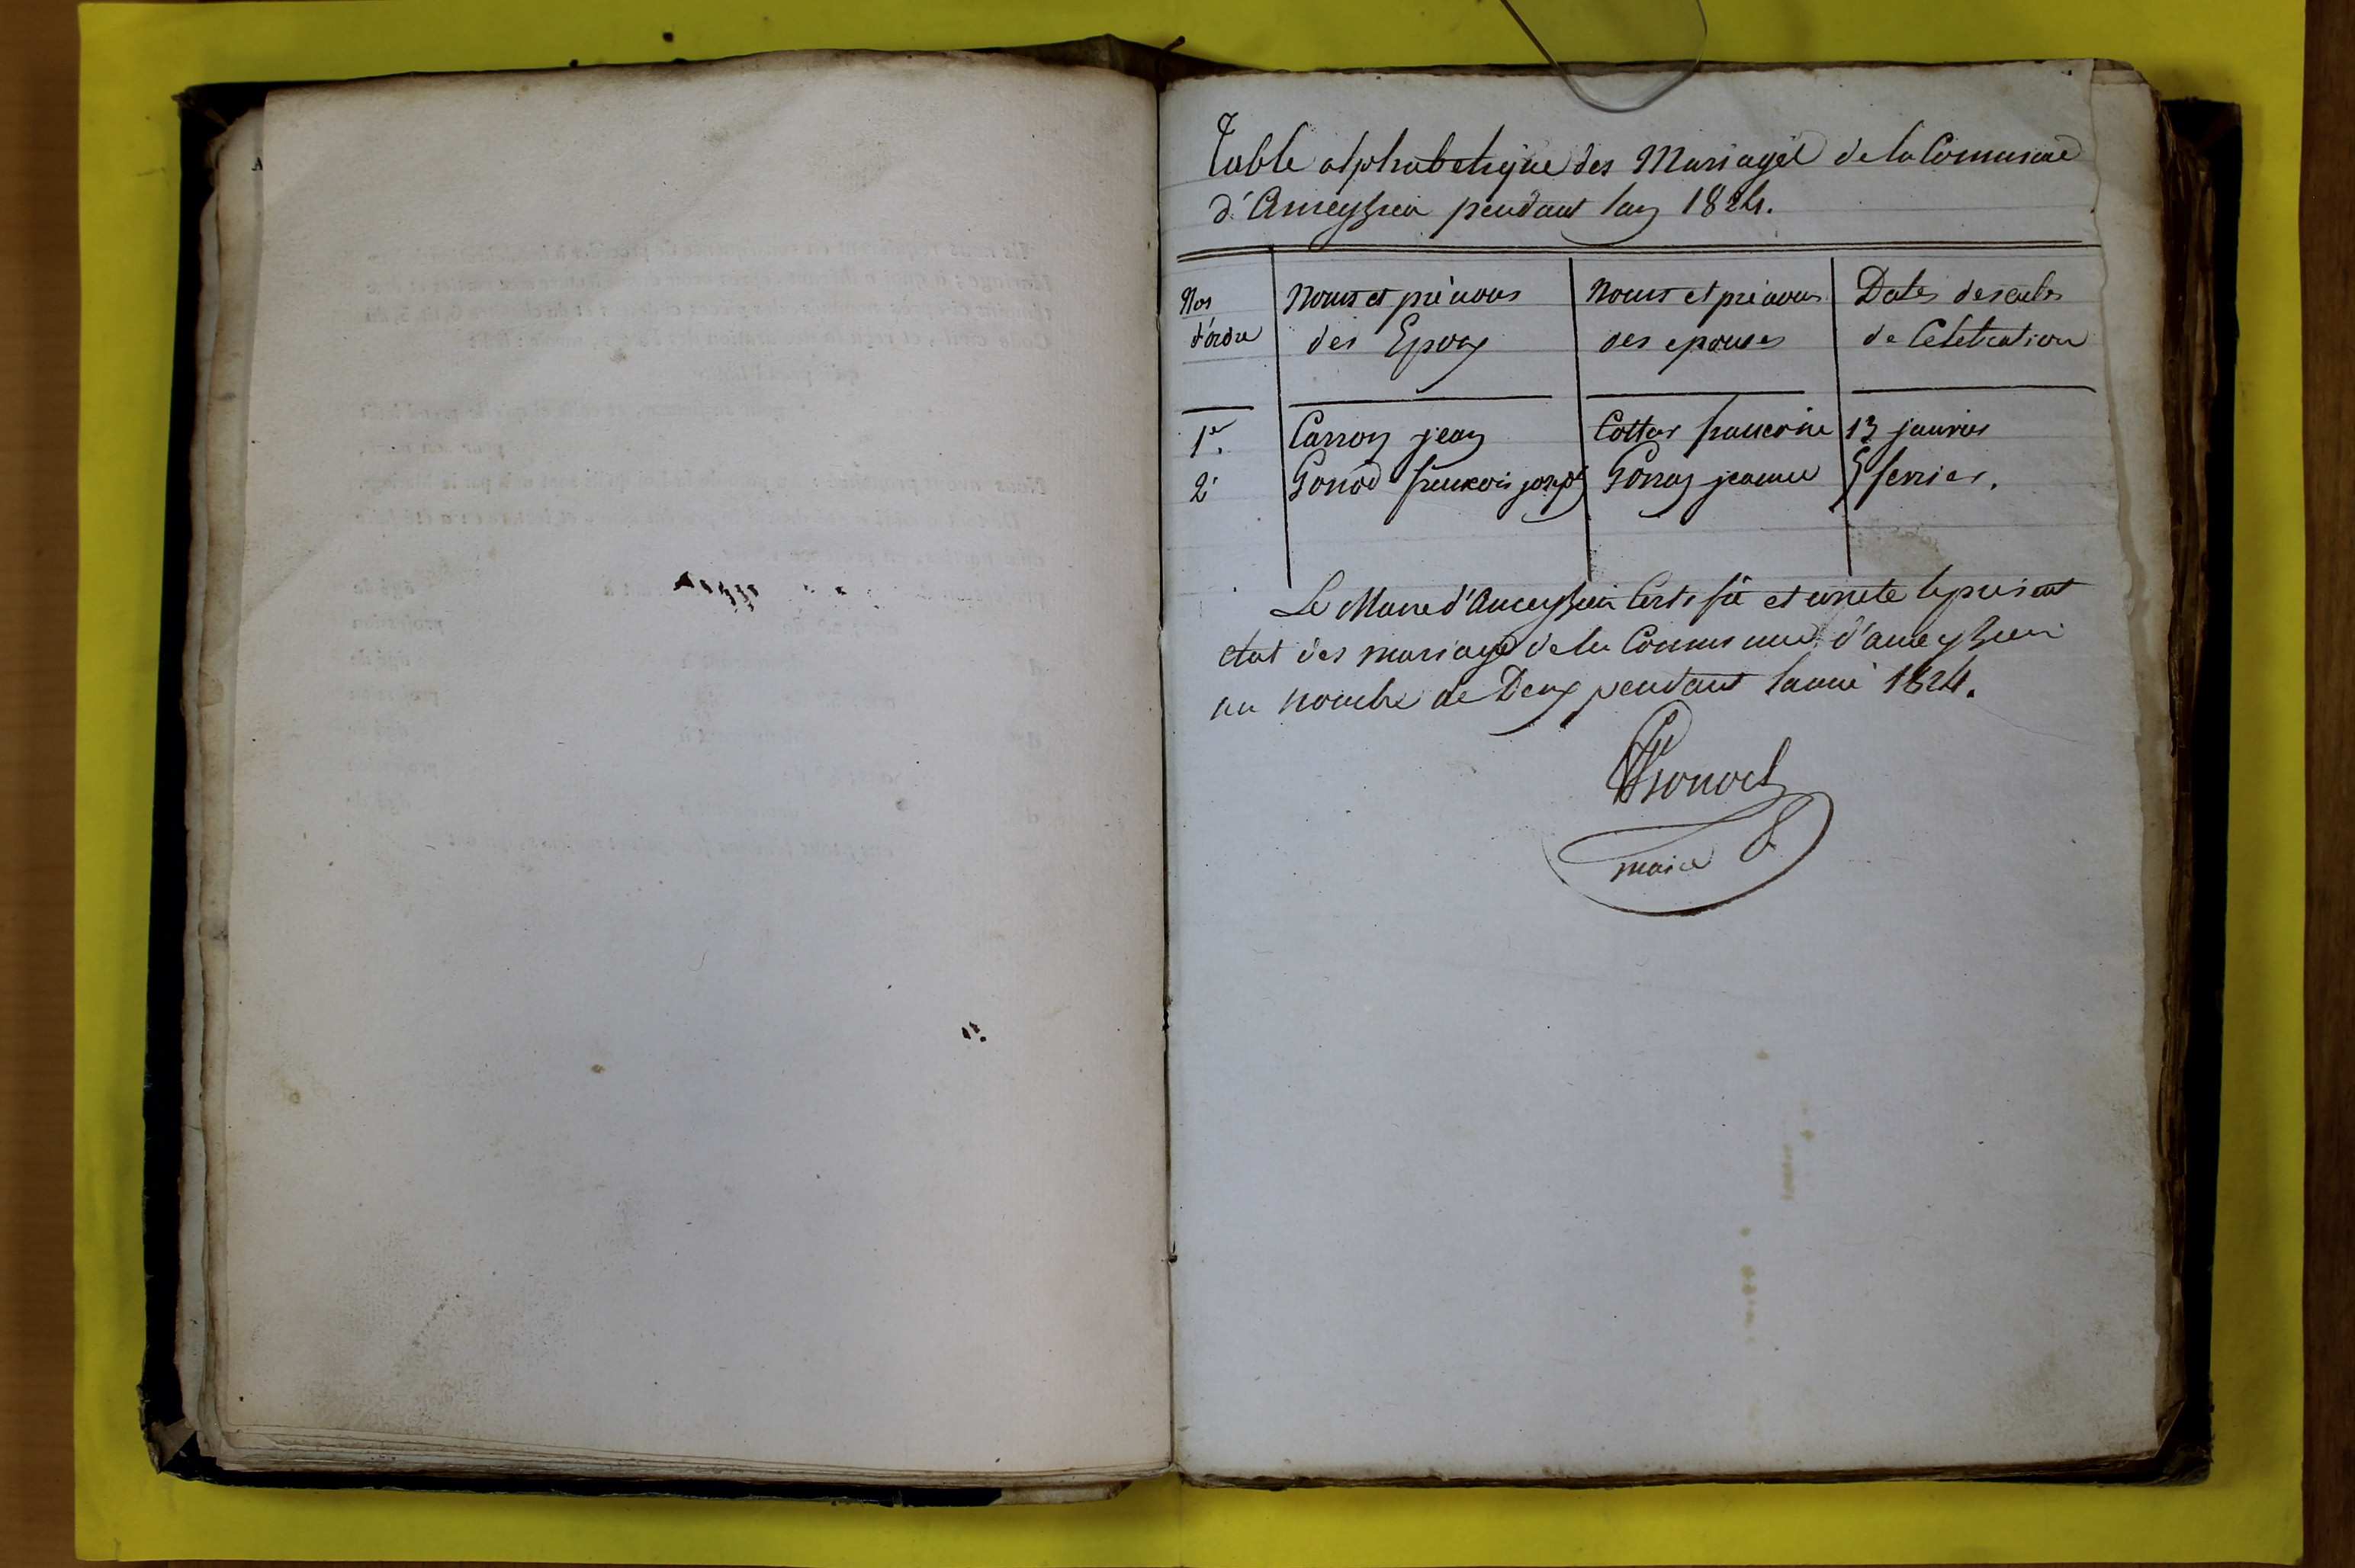 Table alphabetique des Mariages de la Commune
d'Ameyzieu pendant lan 1824.
Nos d'ordre | Noms et prénoms des Epoux | Noms et prénoms des epouses | Dates des actes de Celebration
1er. | Carron jean | Cottar francoise | 13 janvier
2e | Gonod francois joseph | Goney jeanne | 5 fevrier.
Le Maire d'Ameyzieu Certifie et arrete le present
etat des mariages de la Commune d'ameyzieu
au nombre de Deux pendant lannée 1824.
Gonod
maire